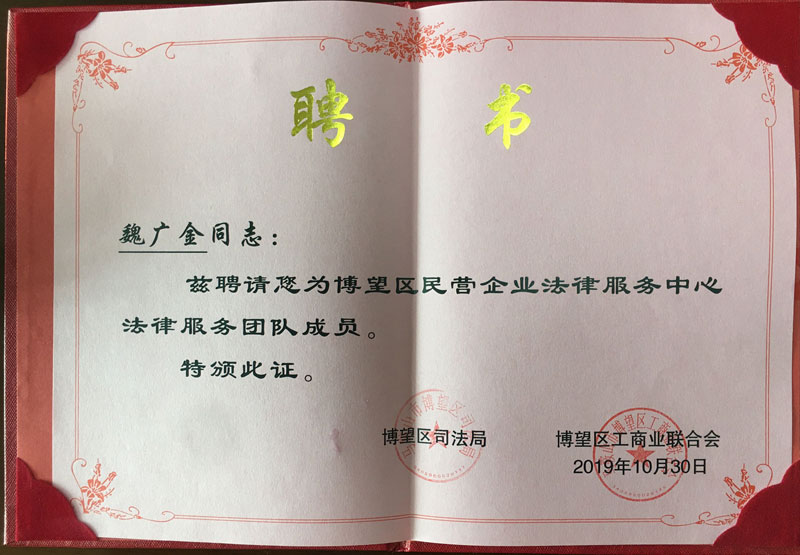 聘 书
魏广金同志：
兹聘请您为博望区民营企业法律服务中心
法律服务团队成员。
特颁此证。
博望区司法局 博望区工商业联合会
2019年10月30日